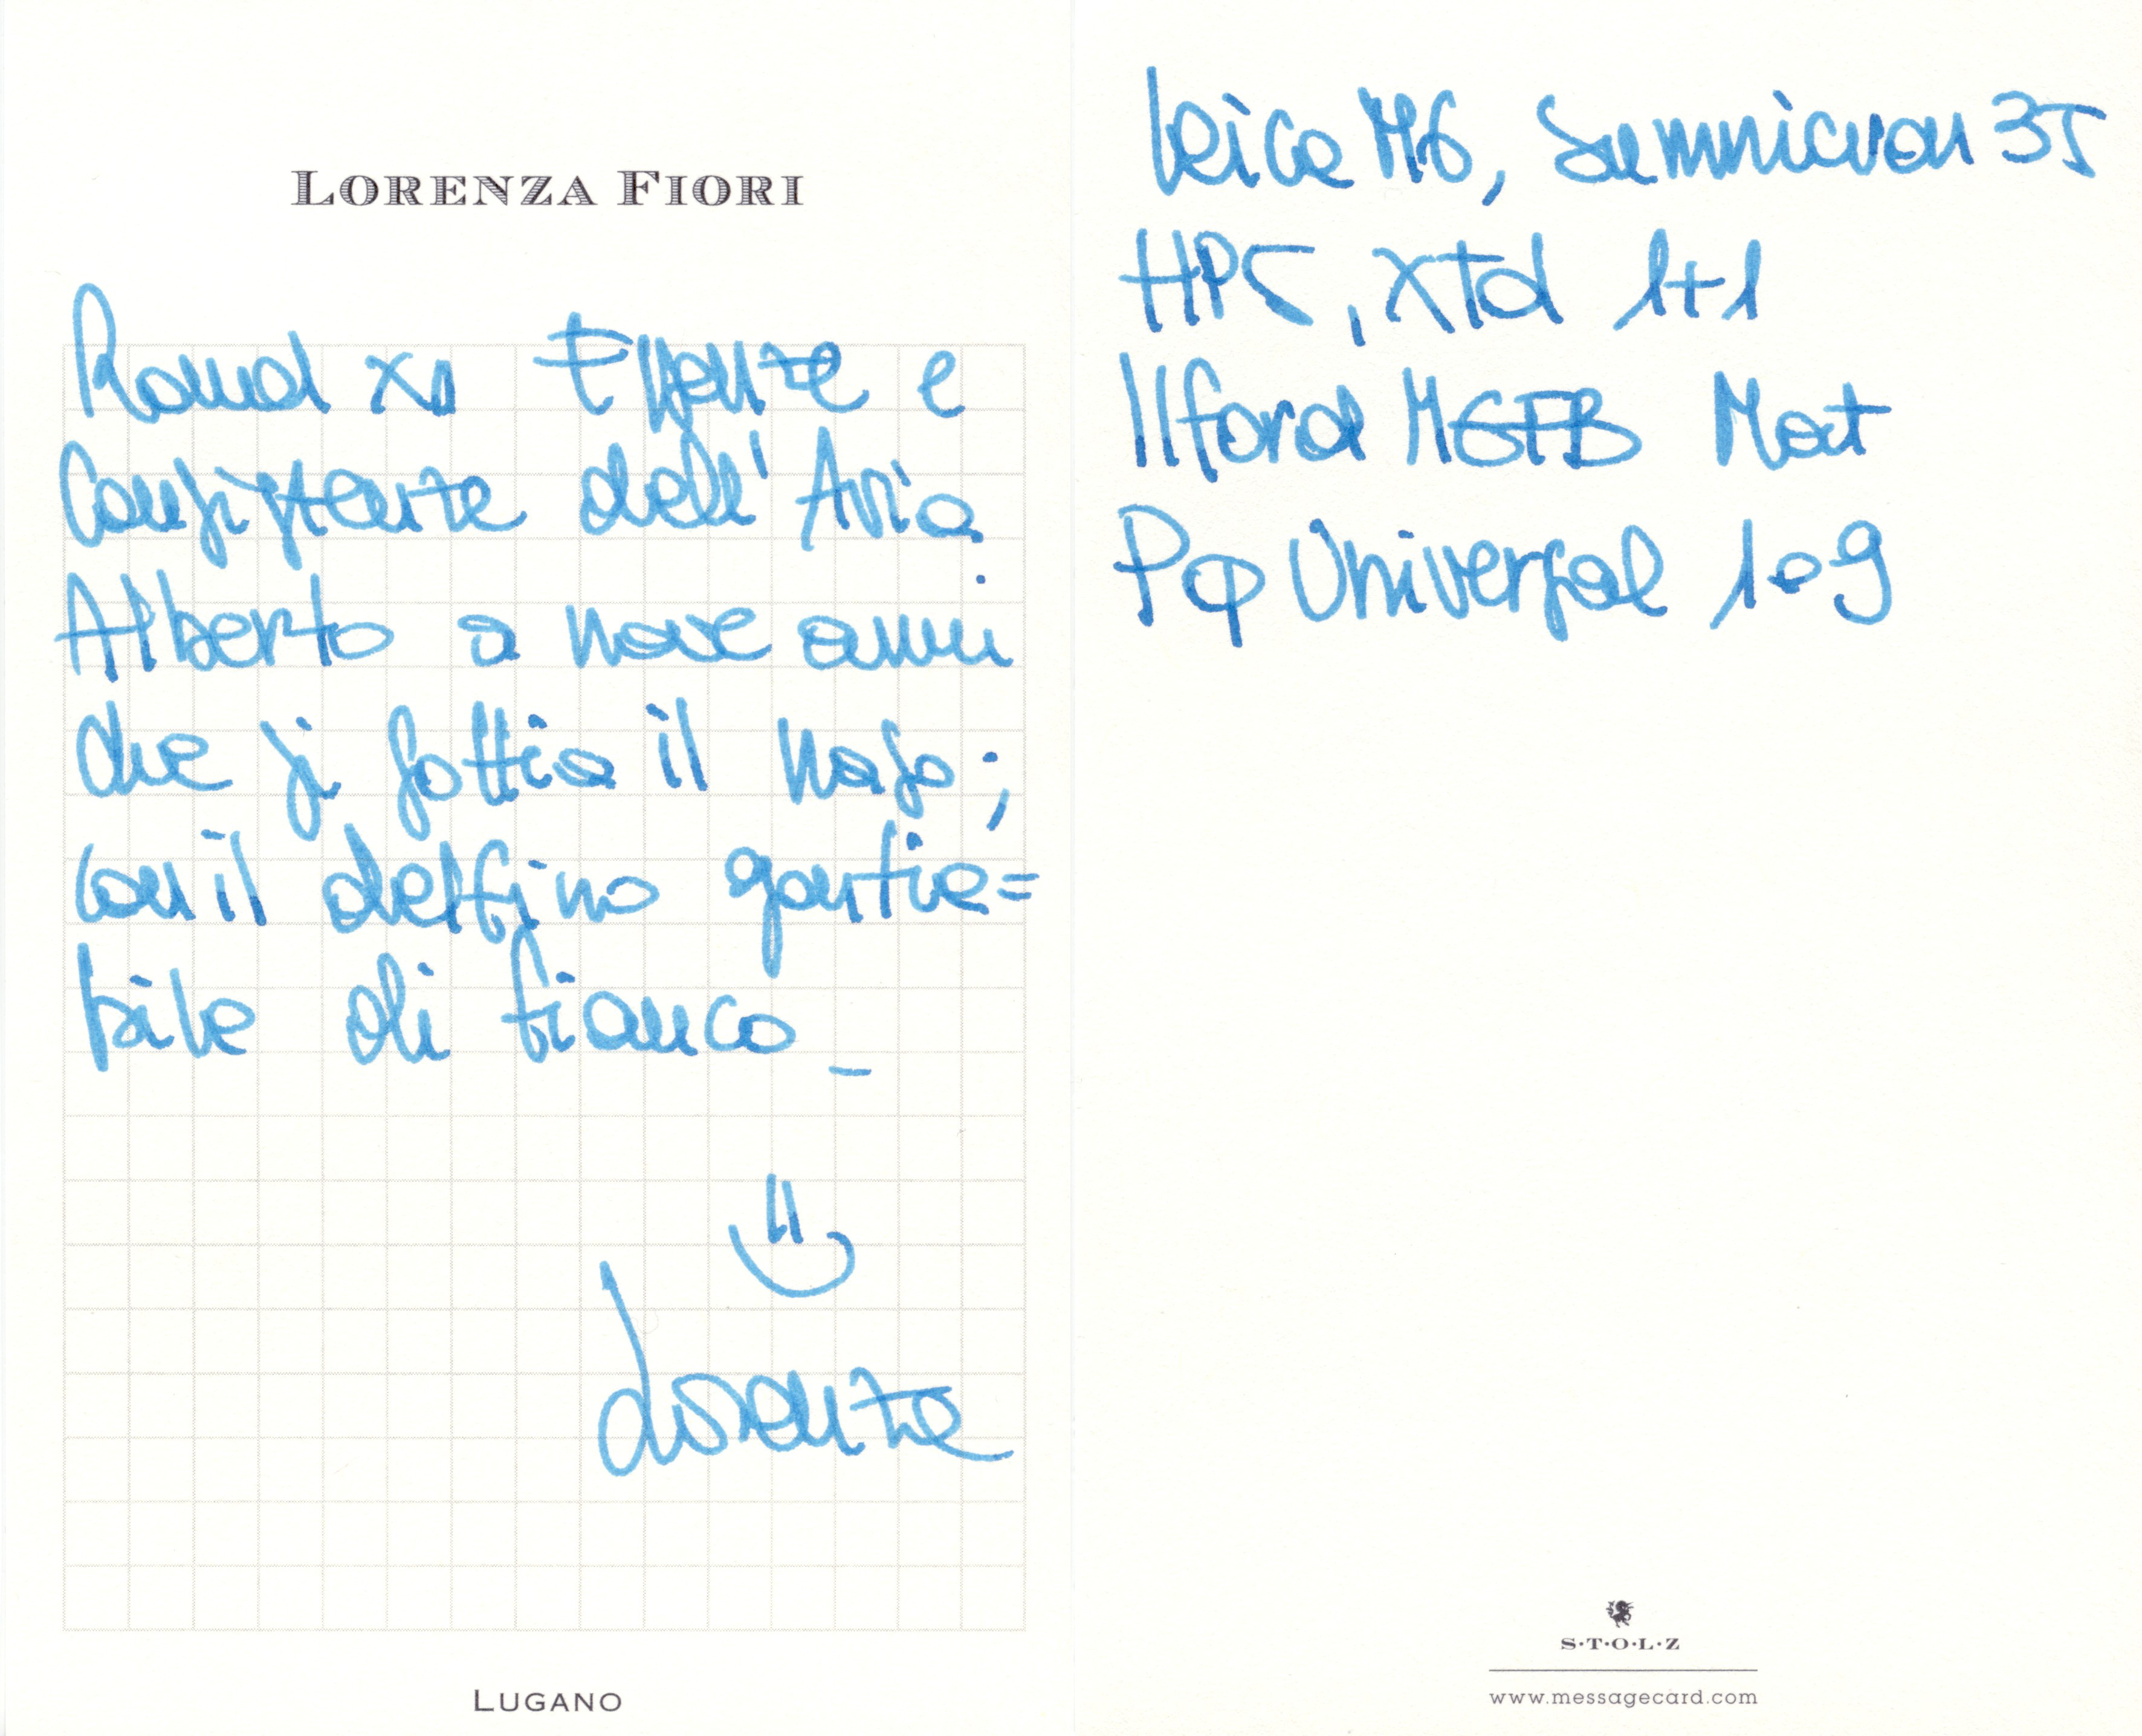 LORENZA FIORI
Roma xx e
Consistente dell'Aria.
Alberto a nove anni
che si soffia il naso;
con il delfino gonfia=
bile di fianco_
Lorenza
LUGANO
Leica M6, Summicron 35
HP5, xtol 1+1
Ilford MGFB Mat
Pq Universal 1+9
S·T·O·L·Z
www.messagecard.com